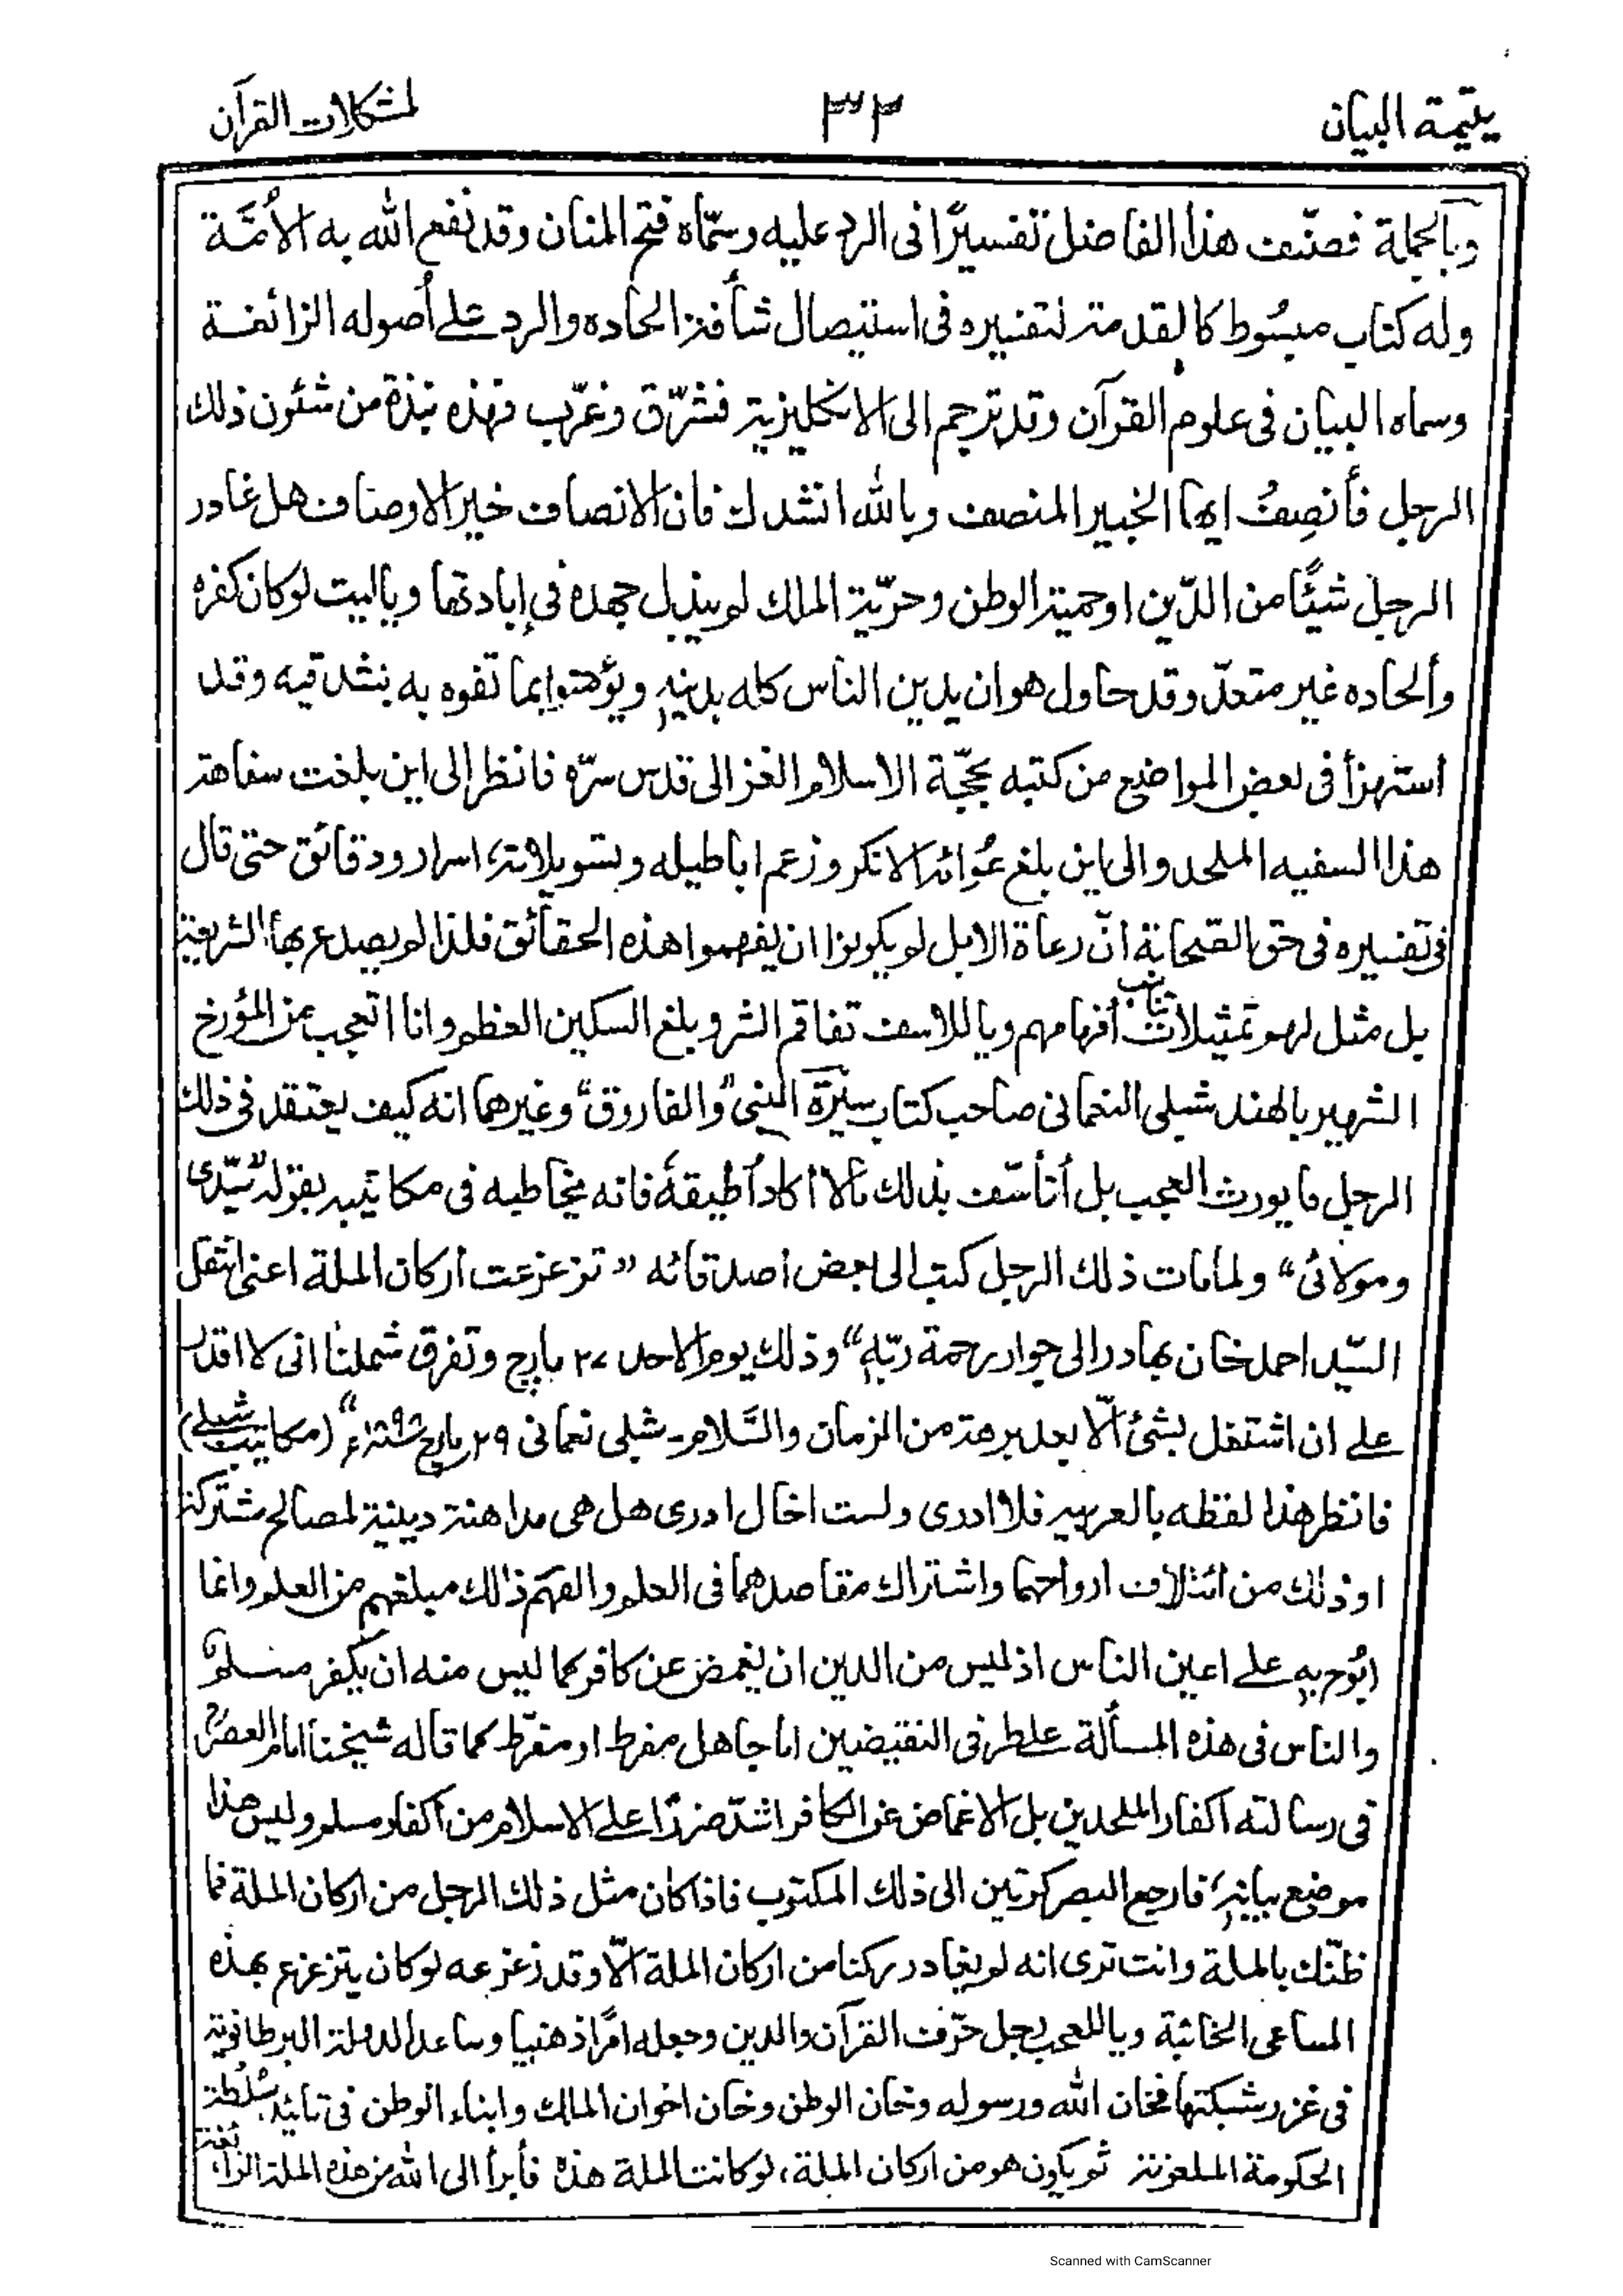 يتيمة البيان ٣٣ لمشكلات القرآن
وبالجملة فصنّف هذا الفاضل تفسيرًا فى الرد عليه وسمّاه فتح المنان وقد نفع الله به الأمّة
وله كتاب مبسُوط كالمقدمة لتفسيره فى استيصال شأفة الحاده والرد على أصوله الزائفة
وسماه البيان فى علوم القرآن وقد ترجم الى الانكليزية فشرّق وغرّب فهذه نبذة من شئون ذلك
الرجل فأنصِفْ ايها الخبير المنصف وبالله انشدك فان الانصاف خير الاوصاف هل غادر
الرجل شيئًا من الدّين اوحمية الوطن وحرّية الملك لم يبذل جهده فى إبادتها وياليت لوكان كفره
وألحاده غير متعدّ وقد حاول هوان يدين الناس كله بدينه ويؤمنوا بما تفوه به بشدقيه وقد
استهزأ فى بعض المواضع من كتبه بحجّة الاسلام الغزالى قدس سرّه فانظر إلى اين بلغت سفاهة
هذا السفيه الملحد والى اين بلغ عُوائه الانكر وزعم اباطيله وتسويلاته، اسرار ودقائق حتى قال
فى تفسيره فى حق الصّحابة انّ رعاة الابل لم يكونوا ان يفهموا هذه الحقائق فلذا لم يصدع بها الشريعة
بل مثل لهم تمثيلات تناسب أفهامهم وياللاسف تفاقم الشر وبلغ السكين العظم وانا اتعجب من المؤرخ
الشهير بالهند شبلى النعمانى صاحب كتاب سيرة النبى" والفاروق" وغيرهما انه كيف يعتقد فى ذلك
الرجل ما يورث العجب بل أتأسّف بذلك مالا أكاد أطيقهُ فانه يخاطبه فى مكاتيبه بقوله "سيّدى
ومولائى" ولمامات ذلك الرجل كتب الى بعض اصدقائه "تزعزعت أركان الملة اعنى انتقل
السّيد احمد خان بهادر الى جوار رحمة ربّه" وذلك يوم الاحد ٢٧ مارچ وتفرق شملنا انى لا اقدر
على ان اشتغل بشئ الّا بعد برهة من الزمان والسَّلام۔ شبلى نعمانى ٢٩ مارچ ١٨٩٨ء" (مكاتيب شبلى)
فانظر هذا لفظه بالعربيه فلا ادرى ولست اخال ادرى هل هى مداهنة دينية لمصالح مشتركة
او ذلك من ائتلاف ارواحهما واشتراك مقاصدهما فى العلم والفهم ذالك مبلغهم من العلم وانما
ابُوح به على اعين الناس اذ ليس من الدين ان يغمض عن كافر كما ليس منه ان يكفر مسلم
والناس فى هذه المسألة على طرفى النقيضين اما جاهل مفرط او مفرّط كما قاله شيخنا امام العصر
فى رسالته اكفار الملحدين بل الاغماض عن الكافر اشدّ ضررًا على الاسلام من اكفار مسلم وليس هذا
موضع بيانه، فارجع البصر كرتين الى ذلك المكتوب فاذا كان مثل ذلك الرجل من اركان الملة فما
ظنّك بالملة وانت ترى انه لم يغادر ركنا من اركان الملة الّا وقد زعزعه لوكان يتزعزع بهذه
المساعى الخائبة وياللعجب رجل حرّف القرآن والدين وجعله امرًا ذهنيا وساعد الدولة البرطانوية
فى غرز شبكتها فخان الله ورسوله وخان الوطن وخان اخوان الملك وابناء الوطن فى تائيد سُلطة
الحكومة الملعونة ثم يكون هو من اركان الملة، لوكانت الملة هذه فأبرأ الى الله من هذه الملة الزائغة
Scanned with CamScanner